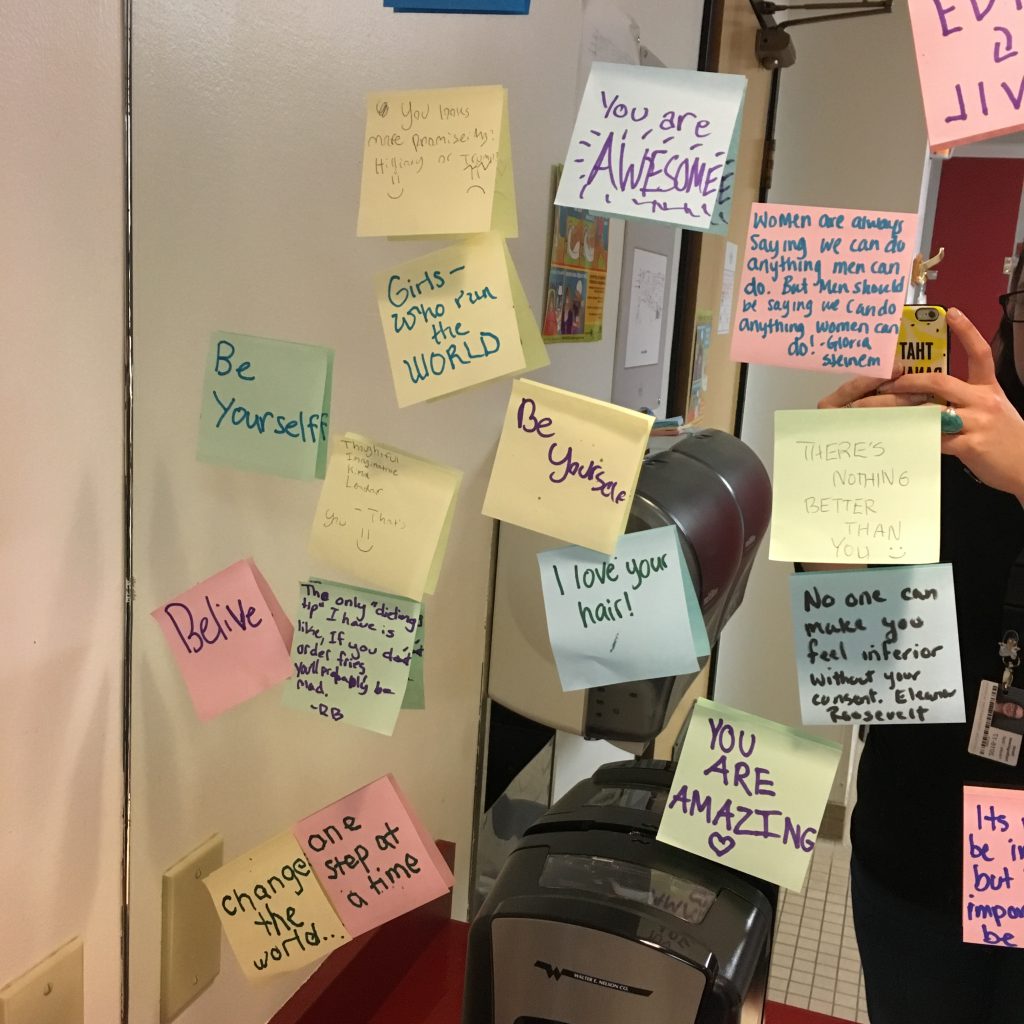 You looks
more promise.
Hilliary or Trump
You are
AWESOME
Women are always
Saying we can do
anything men can
do. But Men should
be saying we can do
anything women can
do! -Gloria
Steinem
Girls-
who run
the
WORLD
Be
Yourselff
Be
Yourself
Thoughtful
Imaginative
Kind
Leader
- That's
You
THERE'S
NOTHING
BETTER
THAN
YOU
Belive
The only "dieting
tip" I have is
like, If you don't
order fries
you'll probably be
mad.
-RB
I love your
hair!
No one can
make you
feel inferior
without your
consent. Eleanor
Roosevelt
YOU
ARE
AMAZING
change
the
world...
one
step at
a time
Its
be
but
be
WALTER E. NELSON CO.